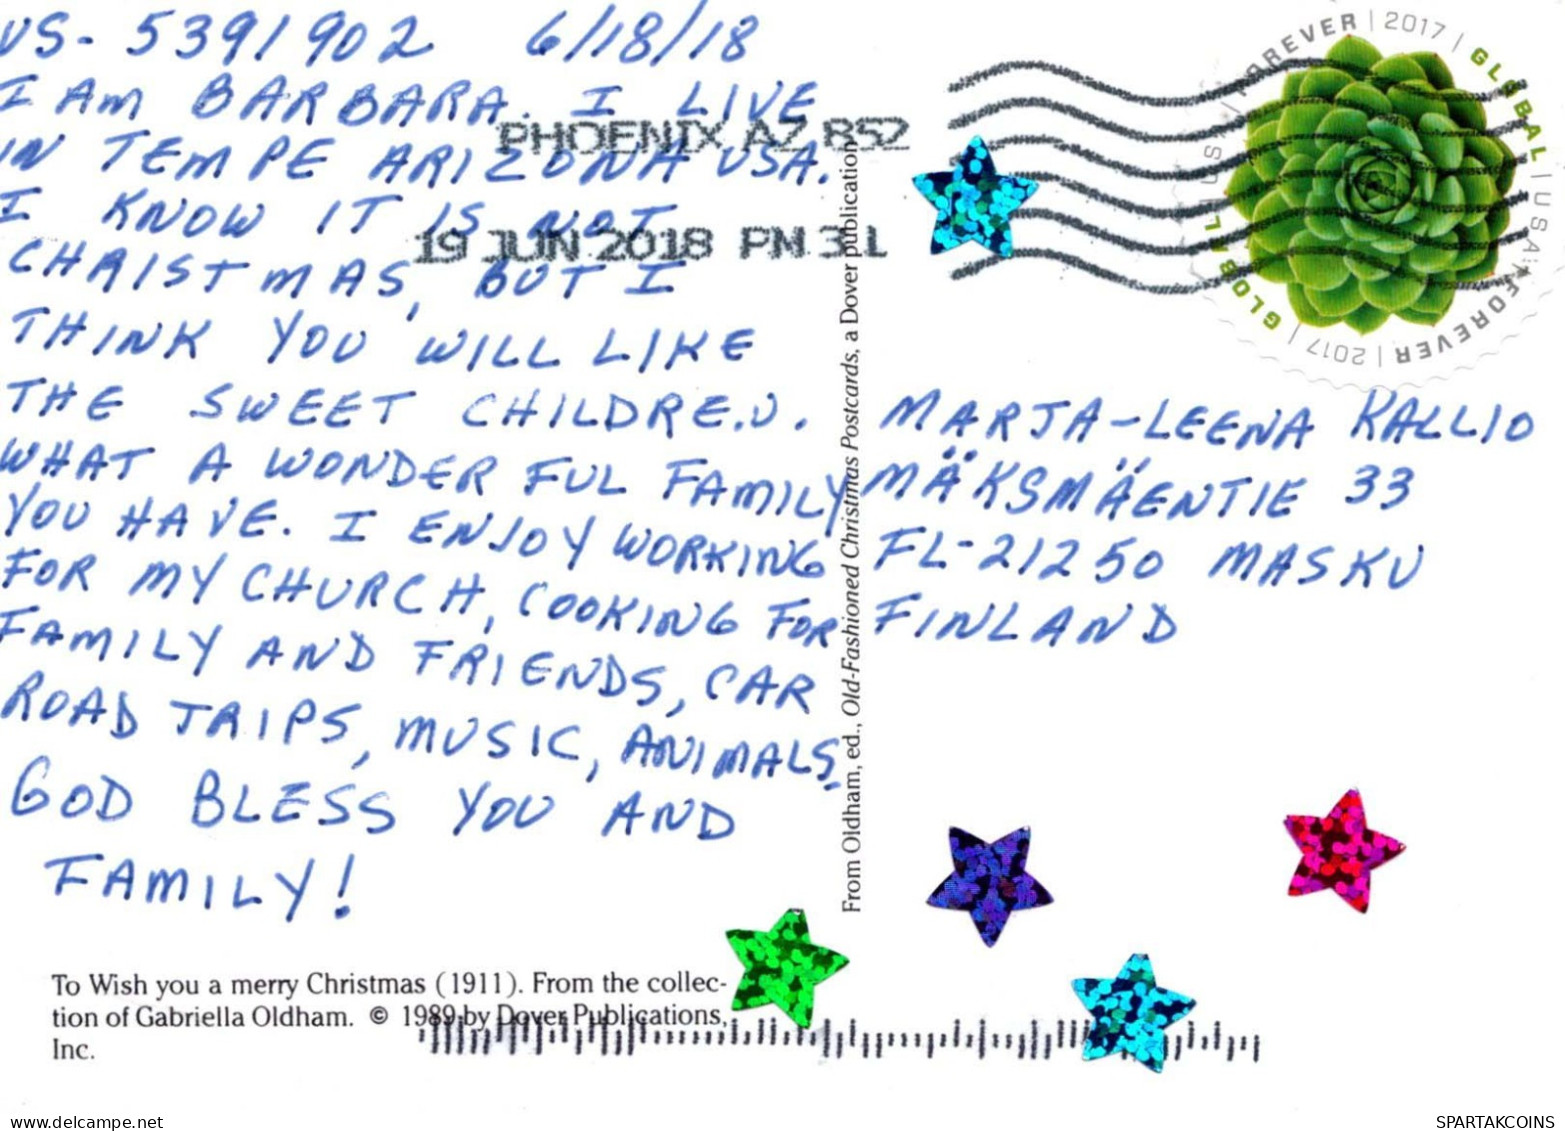 US-5391902 6/18/18
I AM BARBARA. I LIVE
IN TEMPE ARIZONA USA.
I KNOW IT IS NOT
CHRISTMAS, BUT I
THINK YOU WILL LIKE
THE SWEET CHILDREN.
WHAT A WONDERFUL FAMILY
YOU HAVE. I ENJOY WORKING
FOR MY CHURCH, COOKING FOR
FAMILY AND FRIENDS, CAR
ROAD TRIPS, MUSIC, ANIMALS.
GOD BLESS YOU AND
FAMILY!
To Wish you a merry Christmas (1911). From the collec-
tion of Gabriella Oldham. © 1989 by Dover Publications,
Inc.
PHOENIX AZ 852
19 JUN 2018 PM 3 L
From Oldham, ed., Old-Fashioned Christmas Postcards, a Dover publication
FOREVER | 2017 | GLOBAL | USA | FOREVER | 2017 | GLOBAL | US
MARJA-LEENA KALLIO
MÄKSMÄENTIE 33
FL-21250 MASKU
FINLAND
www.delcampe.net
SPARTAKCOINS